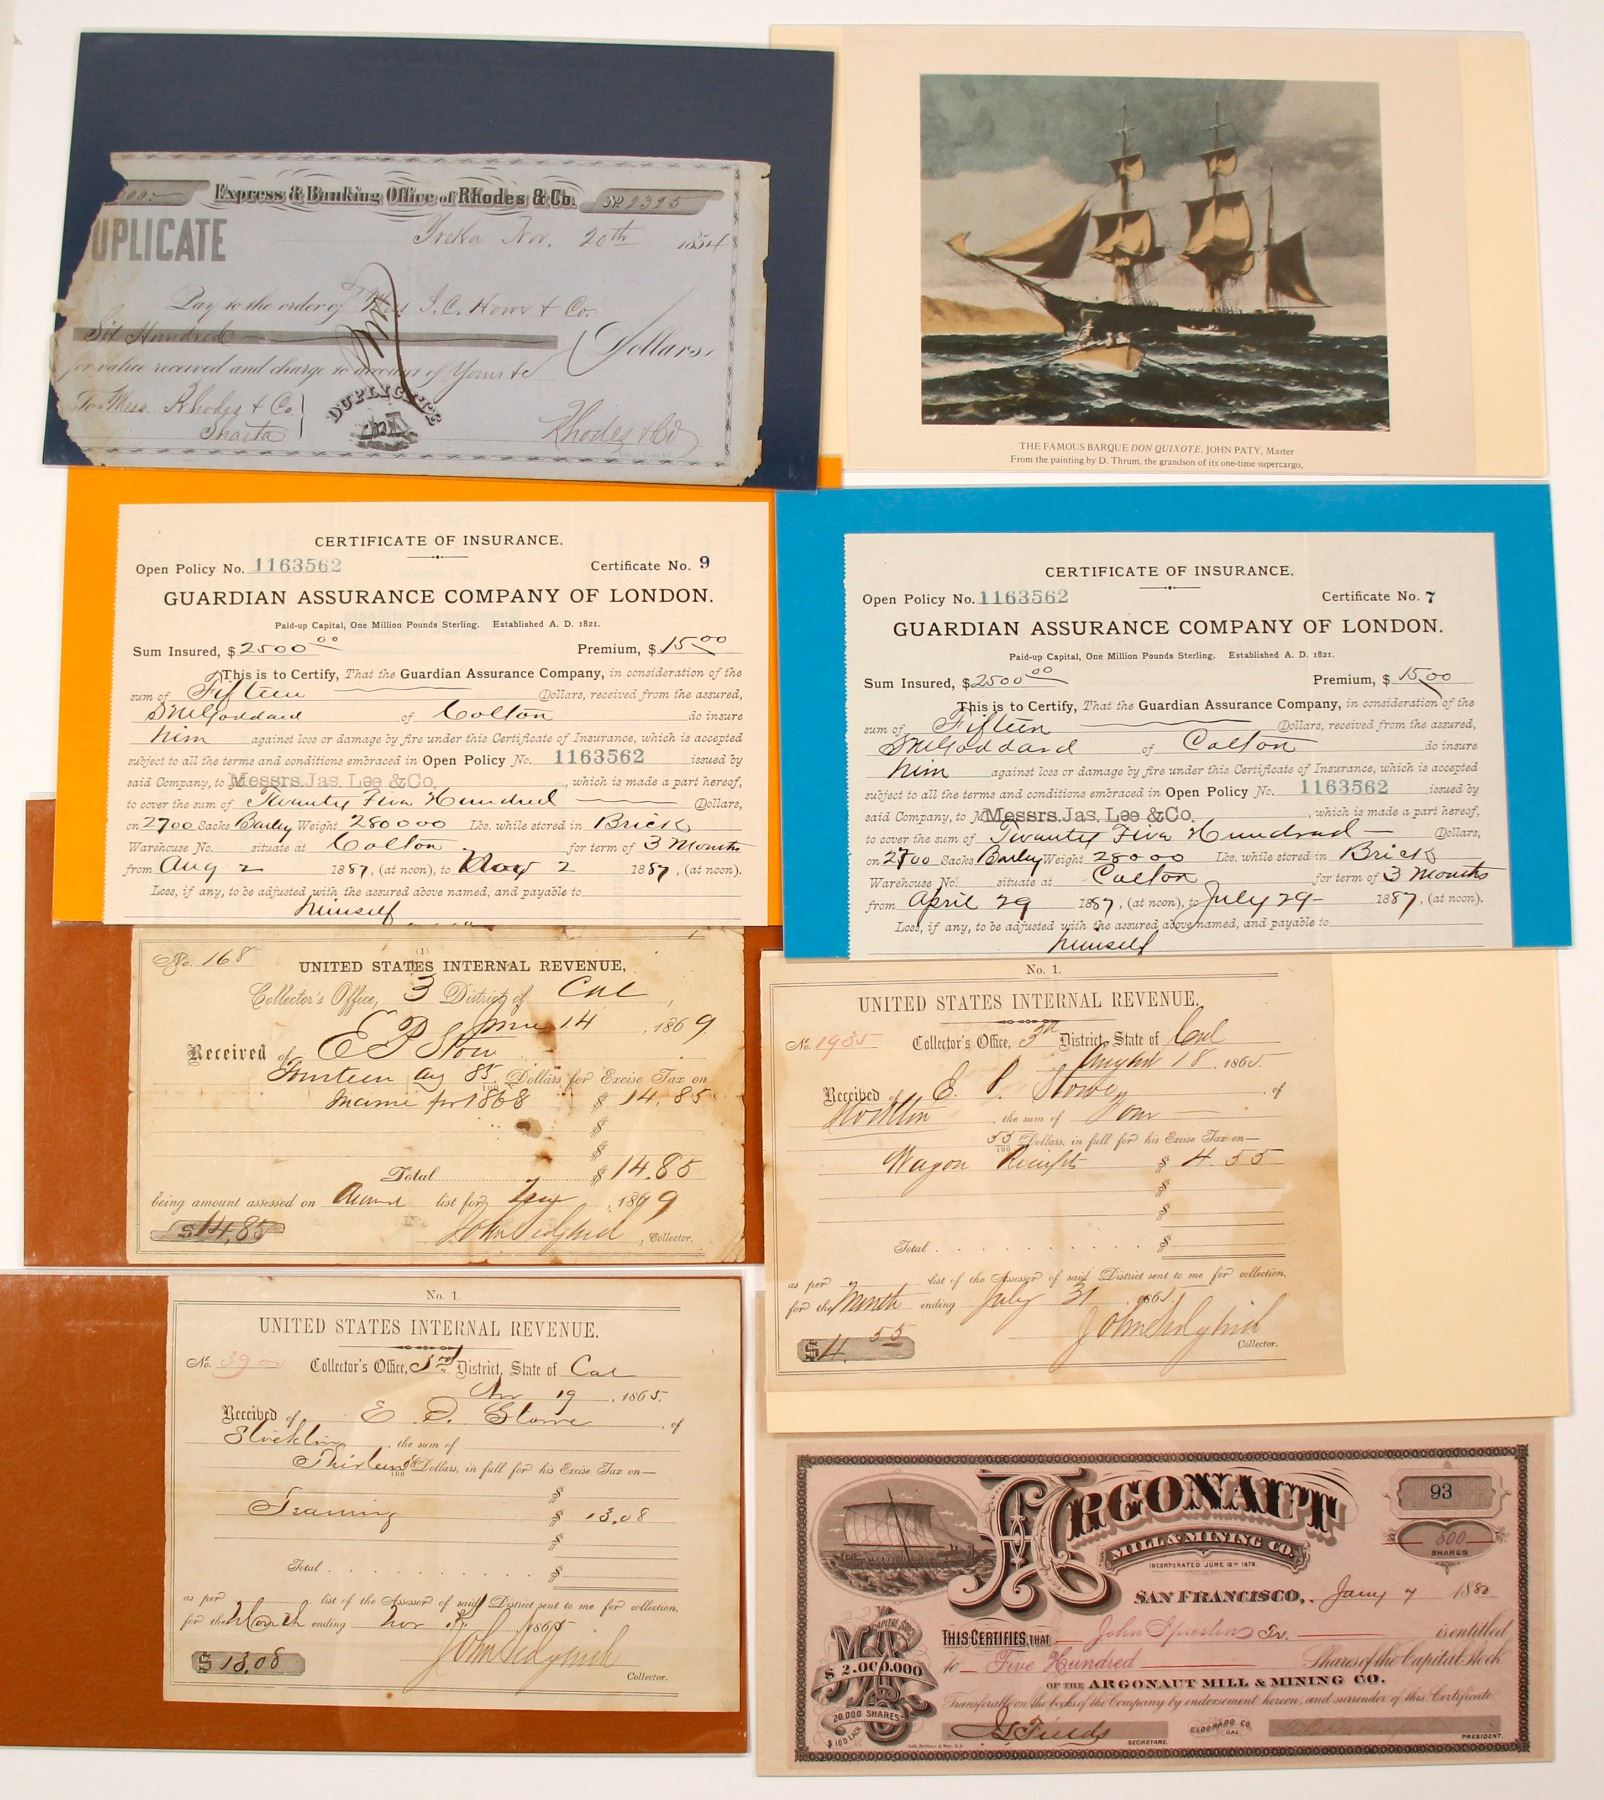 Express & Banking Office of Rhodes & Co. No. 2325
UPLICATE
Yreka Nov. 20th 1854
Pay to the order of Mess I.C. & Co.
Six Hundred Dollars
for value received and charge to account of Yours &c
To Mess. Rhodes & Co
Shasta
DUPLICATE
Rhodes & Co
THE FAMOUS BARQUE DON QUIXOTE, JOHN PATY, Master
From the painting by D. Thrum, the grandson of its one-time supercargo,
CERTIFICATE OF INSURANCE.
Open Policy No. 1163562 Certificate No. 9
GUARDIAN ASSURANCE COMPANY OF LONDON.
Paid-up Capital, One Million Pounds Sterling. Established A. D. 1821.
Sum Insured, $2500 00 Premium, $15 00
This is to Certify, That the Guardian Assurance Company, in consideration of the
sum of Fifteen Dollars, received from the assured,
S M Goddard of Colton do insure
him against loss or damage by fire under this Certificate of Insurance, which is accepted
subject to all the terms and conditions embraced in Open Policy No. 1163562 issued by
said Company, to Messrs. Jas. Lee & Co. , which is made a part hereof,
to cover the sum of Twenty Five Hundred Dollars,
on 2700 Sacks Barley Weight 280000 Lbs. while stored in Brick
Warehouse No. situate at Colton for term of 3 Months
from Aug 2 1887, (at noon), to Nov 2 1887, (at noon).
Loss, if any, to be adjusted with the assured above named, and payable to
himself
CERTIFICATE OF INSURANCE.
Open Policy No. 1163562 Certificate No. 7
GUARDIAN ASSURANCE COMPANY OF LONDON.
Paid-up Capital, One Million Pounds Sterling. Established A. D. 1821.
Sum Insured, $2500 00 Premium, $15.00
This is to Certify, That the Guardian Assurance Company, in consideration of the
sum of Fifteen Dollars, received from the assured,
S M Goddard of Colton do insure
him against loss or damage by fire under this Certificate of Insurance, which is accepted
subject to all the terms and conditions embraced in Open Policy No. 1163562 issued by
said Company, to Messrs. Jas. Lee & Co. , which is made a part hereof,
to cover the sum of Twenty Five Hundred Dollars,
on 2700 Sacks Barley Weight 28000 Lbs. while stored in Brick
Warehouse No. situate at Colton for term of 3 Months
from April 29 1887, (at noon), to July 29 1887, (at noon).
Loss, if any, to be adjusted with the assured above named, and payable to
himself
No. 168 (1)
UNITED STATES INTERNAL REVENUE,
Collector's Office, 3 District of Cal,
14, 1869
Received of E P Stow
Fourteen 85/100 Dollars, for Excise Tax on
Income for 1868 $ 14.85
$
$
Total $ 14.85
being amount assessed on Annual list for 1869
$14.85 John Sedgwick, Collector.
No. 1.
UNITED STATES INTERNAL REVENUE.
No. 1935 Collector's Office, 3d District, State of Cal
August 18, 1865.
Received of E. P. Stowe, of
Stockton, the sum of Four
55/100 Dollars, in full for his Excise Tax on—
Wagon Receipts $ 4.55
$
$
Total $
as per list of the Assessor of said District sent to me for collection,
for the Month ending July 31, 1865.
$4.55 John Sedgwick
Collector.
No. 1.
UNITED STATES INTERNAL REVENUE.
No. Collector's Office, 3rd District, State of Cal
Nov 19, 1865.
Received of E P. Stowe, of
Stockton, the sum of
Thirteen 08/100 Dollars, in full for his Excise Tax on—
$
Teaming $ 13.08
$
Total $
as per list of the Assessor of said District sent to me for collection,
for the Month ending Nov, 1865
$13.08 John Sedgwick
Collector.
ARGONAUT
MILL & MINING CO.
INCORPORATED JUNE 18TH 1878.
93
$ 500
SHARES
SAN FRANCISCO, Jany 7 1880
THIS CERTIFIES, THAT John Jr. is entitled
to Five Hundred Shares of the Capital Stock
OF THE ARGONAUT MILL & MINING CO.
Transferable on the books of the Company by endorsement hereon, and surrender of this Certificate
CAPITAL STOCK
$2.000.000
20.000 SHARES
$100 EACH
J Fields
SECRETARY.
ELDORADO CO.
CAL.
PRESIDENT.